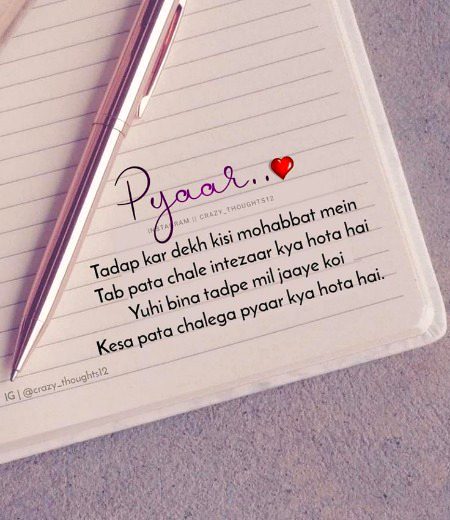 Pyaar..❤️
INSTAGRAM || CRAZY_THOUGHTS12
Tadap kar dekh kisi mohabbat mein
Tab pata chale intezaar kya hota hai
Yuhi bina tadpe mil jaaye koi
Kesa pata chalega pyaar kya hota hai.
IG | @crazy_thoughts12